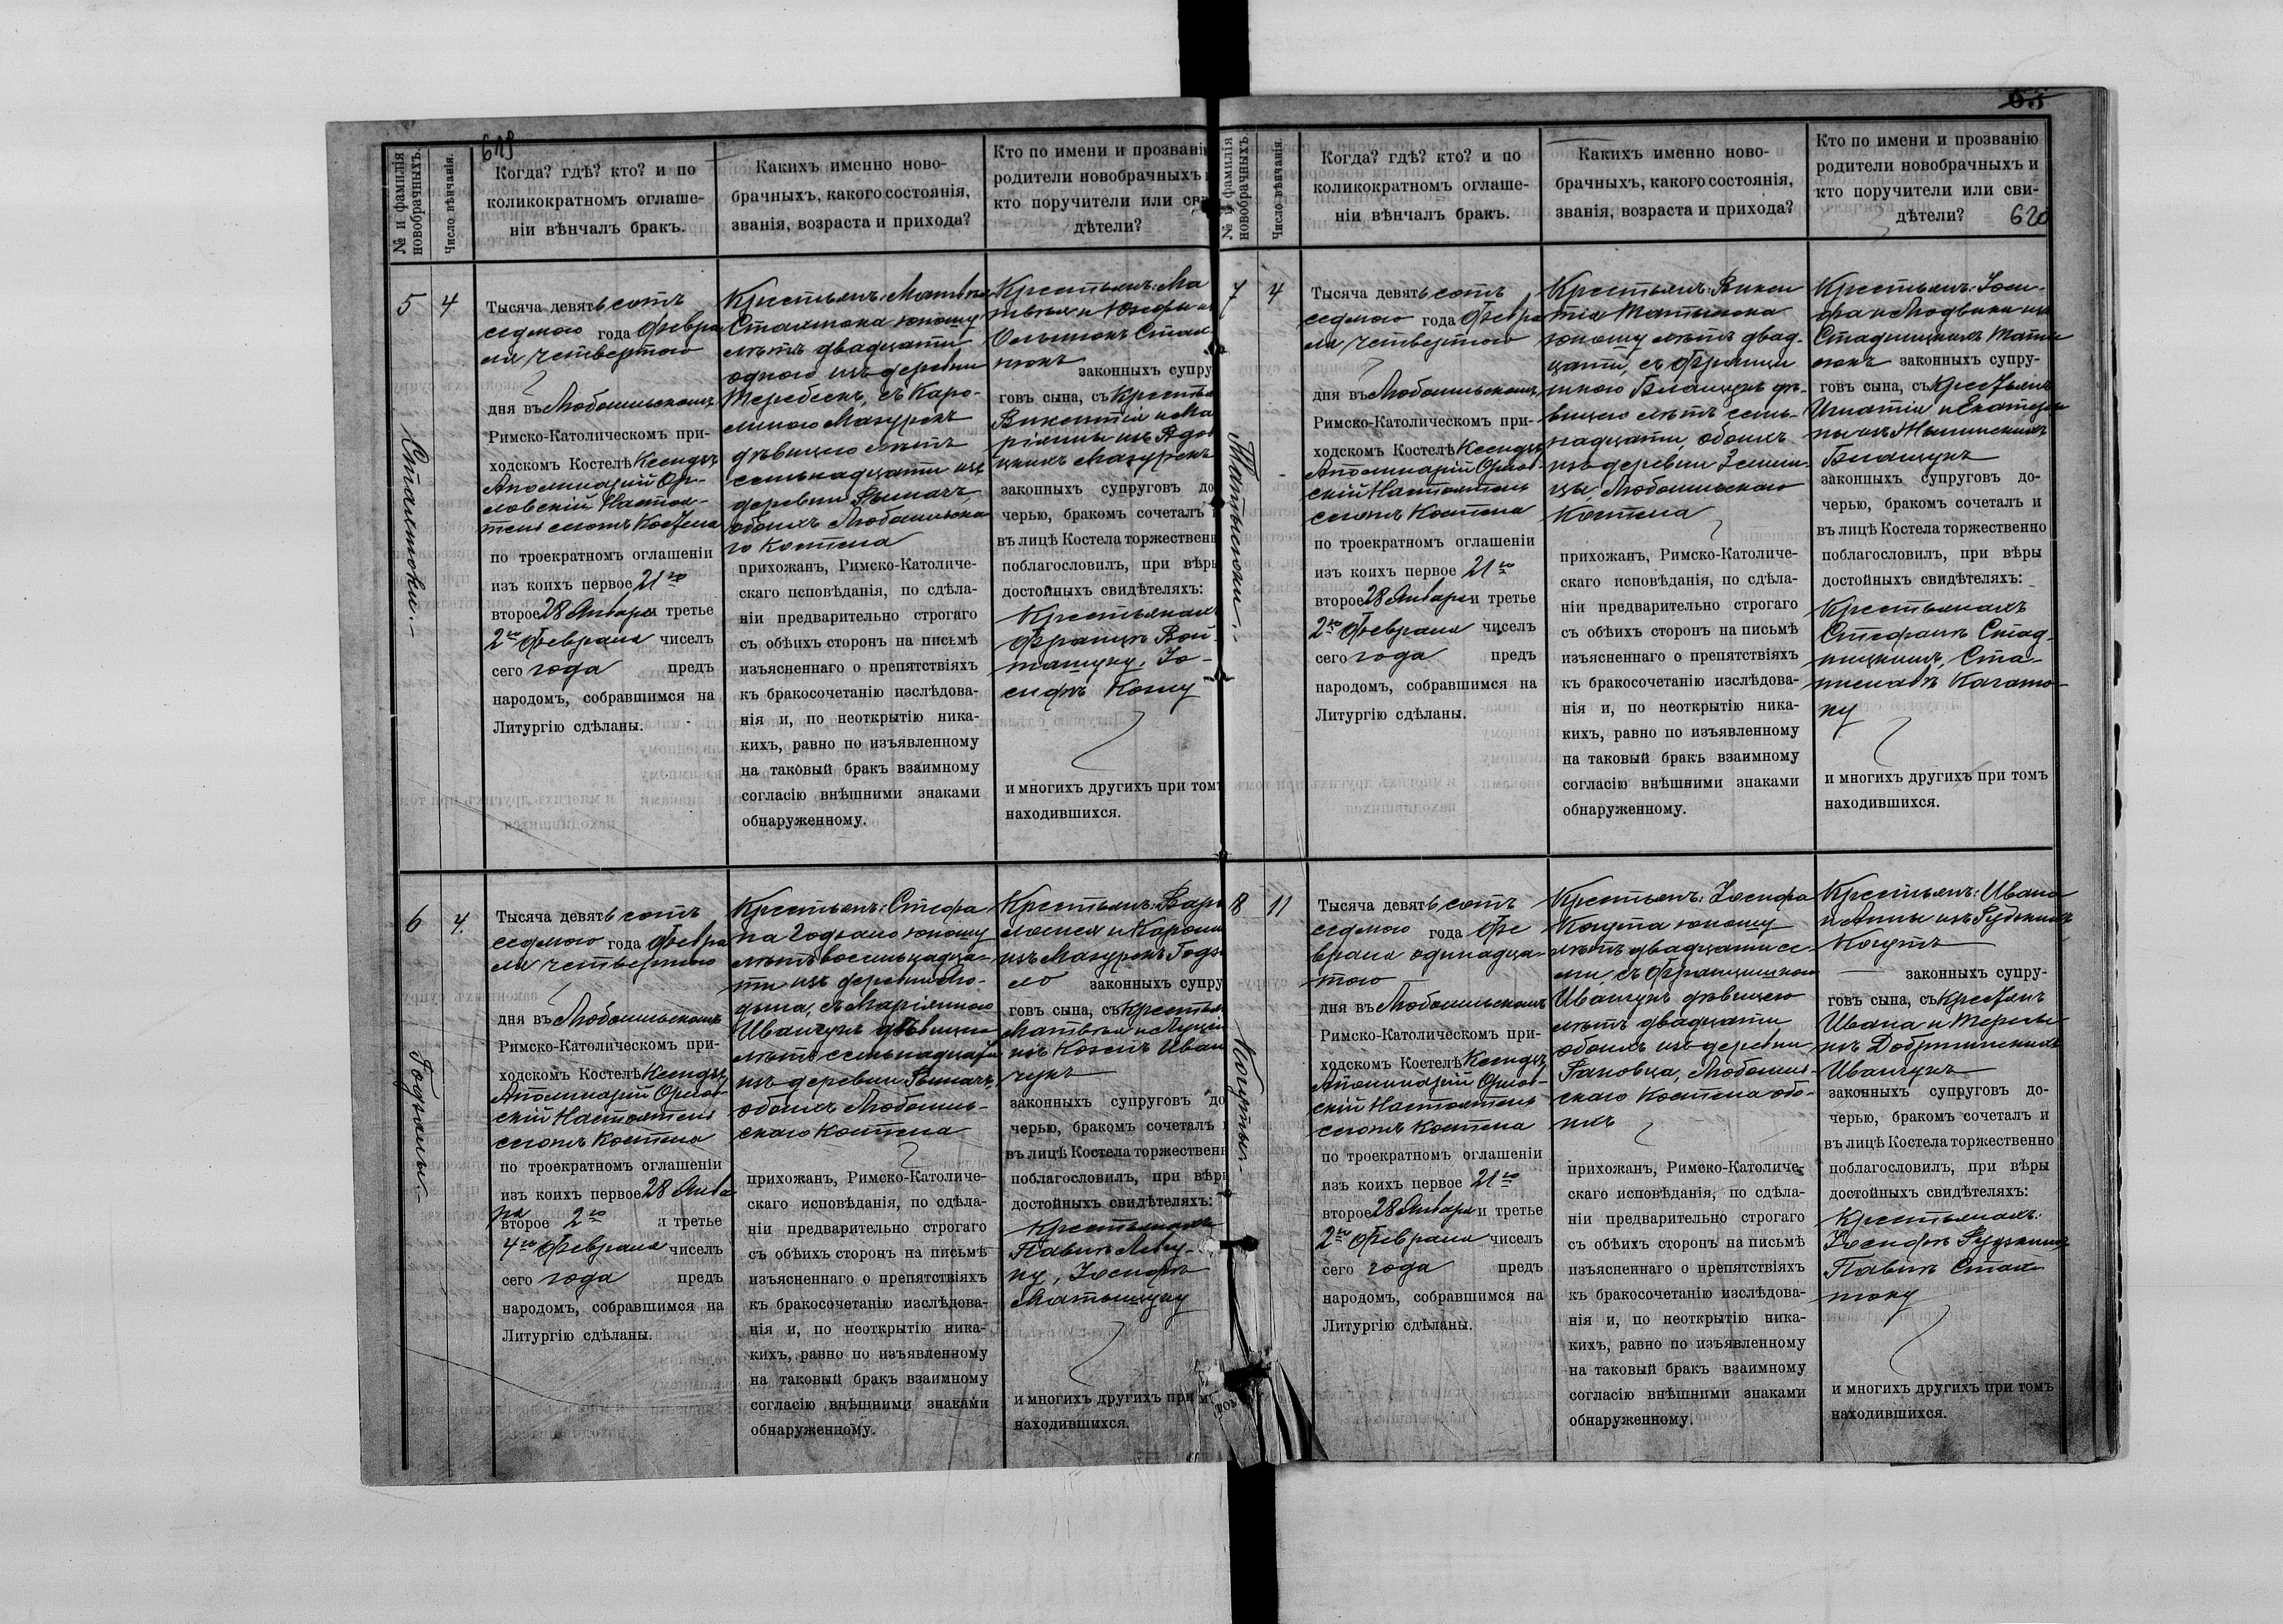 619
№ и фамилія новобрачныхъ.
Число вѣнчанія.
Когда? гдѣ? кто? и по
коликократномъ оглаше-
ніи вѣнчалъ бракъ.
Какихъ именно ново-
брачныхъ, какого состоянія,
званія, возраста и прихода?
Кто по имени и прозванію
родители новобрачныхъ
кто поручители или сви
дѣтели?
5
4
Тысяча девятьсотъ
седмого года Февра
ля четвертого
дня въ Любошильскомъ
Римско-Католическомъ при-
ходскомъ Костелѣ Ксендзъ
Аполинарій Ор-
ловскій Настоя-
тель сегожъ Костела
по троекратномъ оглашеніи
изъ коихъ первое 21го
второе 28 Января и третье
2го Февраля чиселъ
сего года предъ
народомъ, собравшимся на
Литургію сдѣланы.
Крестьянъ: Матвѣя
юношу
лѣтъ двадцати
одного изъ деревни
Теребеск, съ Каро-
линою Мазурокъ
дѣвицею лѣтъ
семьнадцати изъ
деревни Рымачъ,
обоихъ Любошильска
го Костела
прихожанъ, Римско-Католиче-
скаго исповѣданія, по сдѣла-
ніи предварительно строгаго
съ обѣихъ сторонъ на письмѣ
изъясненнаго о препятствіяхъ
къ бракосочетанію изслѣдова-
нія и, по неоткрытію ника-
кихъ, равно по изъявленному
на таковый бракъ взаимному
согласію внѣшними знаками
обнаруженному.
Крестьянъ: Ма
твѣя и
законныхъ супру
говъ сына, съ Крестья
Викентія и Ма
ріянны изъ
Мазурокъ
законныхъ супруговъ до
черью, бракомъ сочеталъ
въ лицѣ Костела торжественн
поблагословилъ, при вѣры
достойныхъ свидѣтеляхъ:
Крестьянахъ
Францѣ Вой
ташуку, Іо-
сифѣ
и многихъ другихъ при томъ
находившихся.
6
4.
Годзелы.
Тысяча девятьсотъ
седмого года Февра
ля четвертого
дня въ Любошильскомъ
Римско-Католическомъ при-
ходскомъ Костелѣ Ксендзъ
Аполинарій Орлов-
скій Настоятель
сегожъ Костела
по троекратномъ оглашеніи
изъ коихъ первое 28 Янва
ря
второе 2го и третье
4го Февраля чиселъ
сего года предъ
народомъ, собравшимся на
Литургію сдѣланы.
Крестьянъ: Стефа
на юношу
лѣтъ восемьнадца-
ти изъ деревни
съ Маріянною
Иванчукъ дѣвицею
лѣтъ семьнадцати
изъ деревни Рымачъ,
обоихъ Любошиль-
скаго Костела
прихожанъ, Римско-Католиче-
скаго исповѣданія, по сдѣла-
ніи предварительно строгаго
съ обѣихъ сторонъ на письмѣ
изъясненнаго о препятствіяхъ
къ бракосочетанію изслѣдова-
нія и, по неоткрытію ника-
кихъ, равно по изъявленному
на таковый бракъ взаимному
согласію внѣшними знаками
обнаруженному.
Крестьянъ: Вар
и Кароли
изъ Мазурокъ Годзе
ло законныхъ супру
говъ сына, съ Крестья
Матвѣя и
изъ Иван
чукъ
законныхъ супруговъ до
черью, бракомъ сочеталъ
въ лицѣ Костела торжественн
поблагословилъ, при вѣры
достойныхъ свидѣтеляхъ:
Крестьянахъ
Павлѣ
Іосифѣ
и многихъ другихъ при
находившихся.
63
№ и фамилія новобрачныхъ.
Число вѣнчанія.
Когда? гдѣ? кто? и по
коликократномъ оглаше-
ніи вѣнчалъ бракъ.
Какихъ именно ново-
брачныхъ, какого состоянія,
званія, возраста и прихода?
Кто по имени и прозванію
родители новобрачныхъ и
кто поручители или сви-
дѣтели?
620
7
4
Тысяча девятьсотъ
седмого года Февра
ля четвертого
дня въ Любошильскомъ
Римско-Католическомъ при-
ходскомъ Костелѣ Ксендзъ
Аполинарій Орлов-
скій Настоятель
сегожъ Костела
по троекратномъ оглашеніи
изъ коихъ первое 21го
второе 28 Января и третье
2го Февраля чиселъ
сего года предъ
народомъ, собравшимся на
Литургію сдѣланы.
Крестьянъ: Викен
тія
юношу лѣтъ двад-
цати, съ Францы
шкою дѣ-
вицею лѣтъ семь-
надцати, обоихъ
изъ деревни
Любошильскаго
Костела
прихожанъ, Римско-Католиче-
скаго исповѣданія, по сдѣла-
ніи предварительно строгаго
съ обѣихъ сторонъ на письмѣ
изъясненнаго о препятствіяхъ
къ бракосочетанію изслѣдова-
нія и, по неоткрытію ника-
кихъ, равно по изъявленному
на таковый бракъ взаимному
согласію внѣшними знаками
обнаруженному.
Крестьянъ: Іоси-
фа и Людвики изъ
Стадницкихъ
законныхъ супру-
говъ сына, съ Крестьянъ
Игнатія и Екатери
ны изъ
законныхъ супруговъ до-
черью, бракомъ сочеталъ и
въ лицѣ Костела торжественно
поблагословилъ, при вѣры
достойныхъ свидѣтеляхъ:
Крестьянахъ
Стефанѣ Стад-
ницкимъ, Ста-
ниславѣ
и многихъ другихъ при томъ
находившихся.
8
11
Когуты.
Тысяча девятьсотъ
седмого года Фе
враля одинадца-
того
дня въ Любошильскомъ
Римско-Католическомъ при-
ходскомъ Костелѣ Ксендзъ
Аполинарій Орлов-
скій Настоятель
сегожъ Костела
по троекратномъ оглашеніи
изъ коихъ первое 21го
второе 28 Января и третье
2го Февраля чиселъ
сего года предъ
народомъ, собравшимся на
Литургію сдѣланы.
Крестьянъ: Іосифа
Когута юношу
лѣтъ двадцати се
ми, съ Францишкою
Иванчукъ дѣвицею
лѣтъ двадцати
обоихъ изъ деревни
Раковца, Любошиль-
скаго Костела обо-
ихъ
прихожанъ, Римско-Католиче-
скаго исповѣданія, по сдѣла-
ніи предварительно строгаго
съ обѣихъ сторонъ на письмѣ
изъясненнаго о препятствіяхъ
къ бракосочетанію изслѣдова-
нія и, по неоткрытію ника-
кихъ, равно по изъявленному
на таковый бракъ взаимному
согласію внѣшними знаками
обнаруженному.
Крестьянъ: Ивана
и Анны изъ
Когутъ
законныхъ супру-
говъ сына, съ Крестьянъ
Ивана и Терезы
изъ
Иванчукъ
законныхъ супруговъ до-
черью, бракомъ сочеталъ и
въ лицѣ Костела торжественно
поблагословилъ, при вѣры
достойныхъ свидѣтеляхъ:
Крестьянахъ:
Іосифѣ
Павлѣ
и многихъ другихъ при томъ
находившихся.